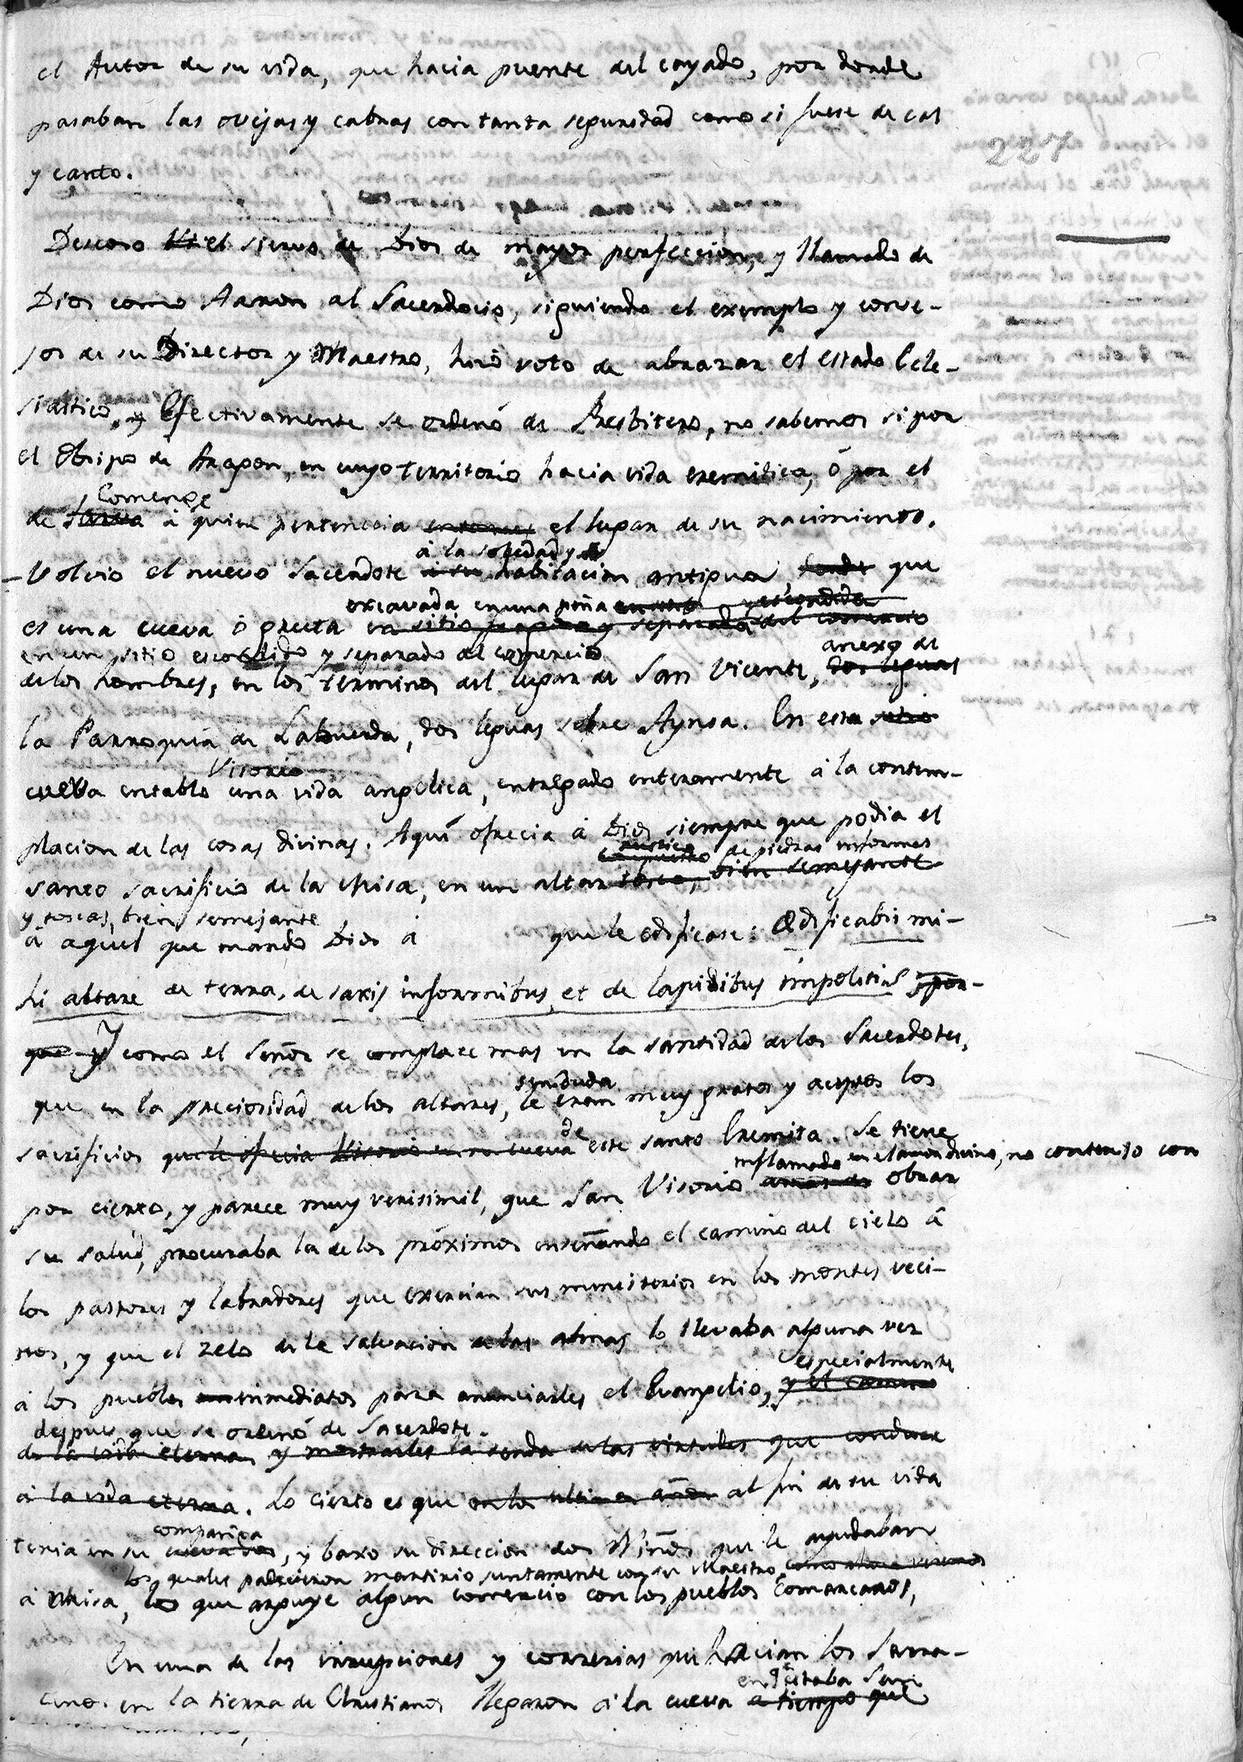 el Autor de su vida, que hacia puente del cayado, por donde
pasaban las ovejas y cabras con tanta seguridad como si fuese de cal
y canto.
227
Deseoso el siervo de Dios de mayor perfeccion, y llamado de
Dios como Aaron al Sacerdocio, siguiendo el exemplo y conse-
jos de su Director y Maestro, hizo voto de abrazar el estado Ecle-
siastico, y Efectivamente se ordenó de Presbitero, no sabemos si por
el Obispo de Aragon, en cuyo territorio hacia vida eremitica, ó por el
Comenge
de à quien pertenecia el lugar de su nacimiento.
à la soledad y
Volvio el nuevo Sacerdote à su habitacion antigua, que
excavada en una peña escondida
es una cueva ó gruta en sitio y separada del comercio
en un sitio escondido y separado del comercio
anexo de
de los hombres, en los terminos del lugar de San Vicente, dos leguas
la Parroquia de Labuerda, dos leguas sobre Aynsa. En esta sitio
Visorio
cueva entablo una vida angelica, entregado enteramente à la contem-
placion de las cosas divinas. Aqui ofrecia à Dios siempre que podia el
rustico de piedras informes
compuesto
santo sacrificio de la Misa, en un altar tosco, bien semejante
y toscas, bien semejante
à aquel que mando Dios à que le edificase: Ædificabis mi-
hi altare de terra, de saxis informibus, et de lapidibus impolitis por-
que y Y como el Señor se complace mas en la santidad de los Sacerdotes,
sin duda
que en la preciosidad de los altares, le eran muy gratos y aceptos los
de
sacrificios que le ofrecia Visorio en su cueva este santo Eremita. Se tiene
inflamado en el amor divino, no contento con
por cierto, y parece muy verisimil, que San Visorio obrar
su salud, procuraba la de los próximos enseñando el camino del cielo à
los pastores y labradores que exercian sus ministerios en los montes veci-
nos, y que el zelo de la salvacion de las almas lo llevaba alguna vez
especialmente
à los pueblos inmediatos para anunciarles el Evangelio, y el camino
despues que se ordenó de Sacerdote.
de la vida eterna, y mostrarles la senda de las virtudes que conduce
à la vida eterna. Lo cierto es que en los ultimos años al fin de su vida
compañia
tenia en su cueva, y baxo su direccion dos Niños que le ayudaban
los quales padecieron martirio juntamente con su Maestro, como ahora veremos
à Misa, lo que arguye algun comercio con los pueblos comarcanos,
En una de las irrupciones y correrias que hacian los Sarra-
en q̃ estaba San
cenos en la tierra de Christianos llegaron à la cueva à tiempo que